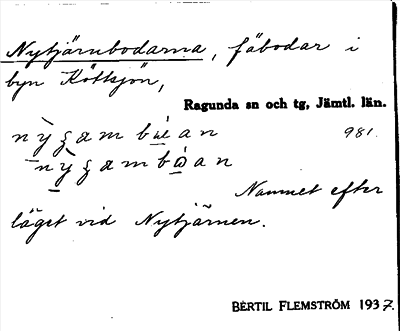 Nytjärnbodarna, fäbodar i
byn Köttsjön,
Ragunda sn och tg, Jämtl. län.
981.
Namnet efter
läget vid Nytjärnen.
BERTIL FLEMSTRÖM 1937.